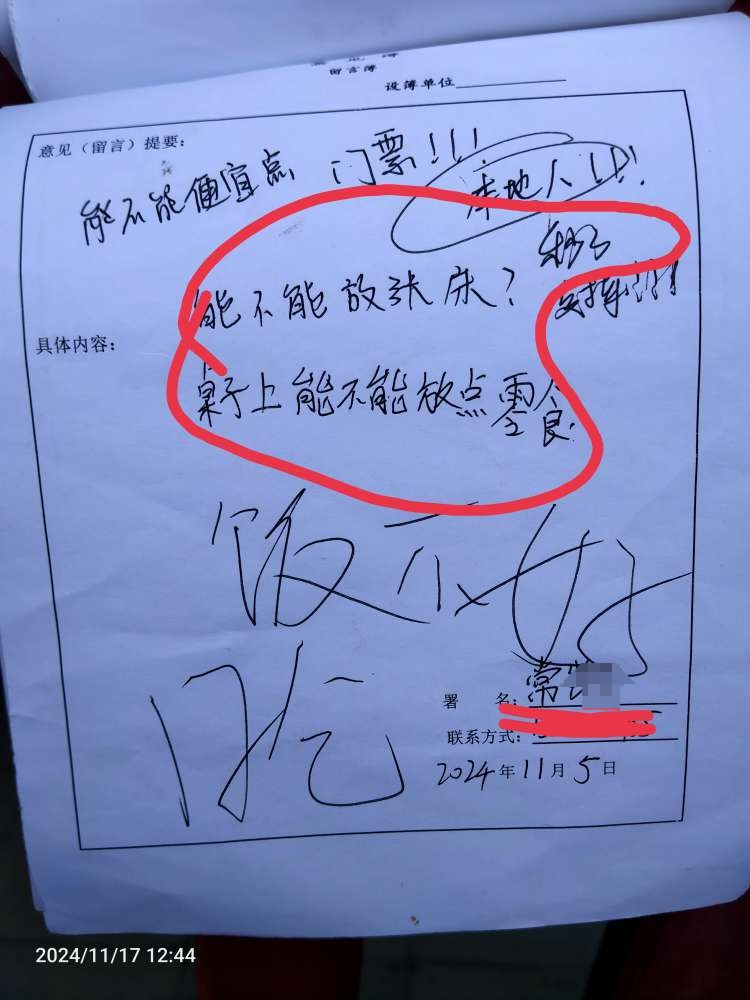 留言簿
设簿单位
意见（留言）提要：
能不能便宜点 门票!!!
本地人!!!
能不能放张床?
具体内容：
桌子上能不能放点零食
饭不好
吃
署 名： 常
联系方式：
2024年11月5日
2024/11/17 12:44